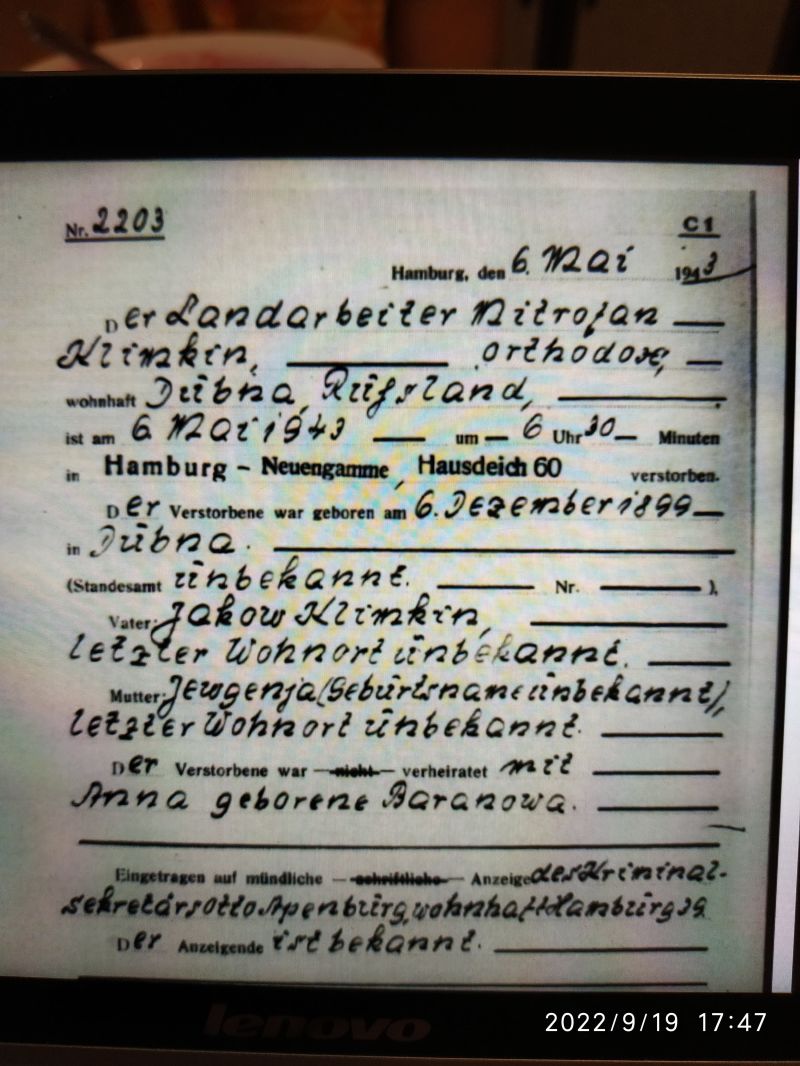 Nr. 2203 C1
Hamburg, den 6. Mai 1943
Der Landarbeiter Mitrofan
Klimkin, orthodox,
wohnhaft Dubna, Russland,
ist am 6. Mai 1943 um 6 Uhr 30 Minuten
in Hamburg - Neuengamme, Hausdeich 60 verstorben.
Der Verstorbene war geboren am 6. Dezember 1899
in Dubna.
(Standesamt unbekannt. Nr. ),
Vater: Jakow Klimkin,
letzter Wohnort unbekannt.
Mutter: Jewgenja (Geburtsname unbekannt),
letzter Wohnort unbekannt.
Der Verstorbene war nicht verheiratet mit
Anna geborene Baranowa.
Eingetragen auf mündliche schriftliche Anzeige des Kriminal-
sekretärs Otto Apenburg, wohnhaft Hamburg 39
Der Anzeigende ist bekannt.
lenovo
2022/9/19 17:47